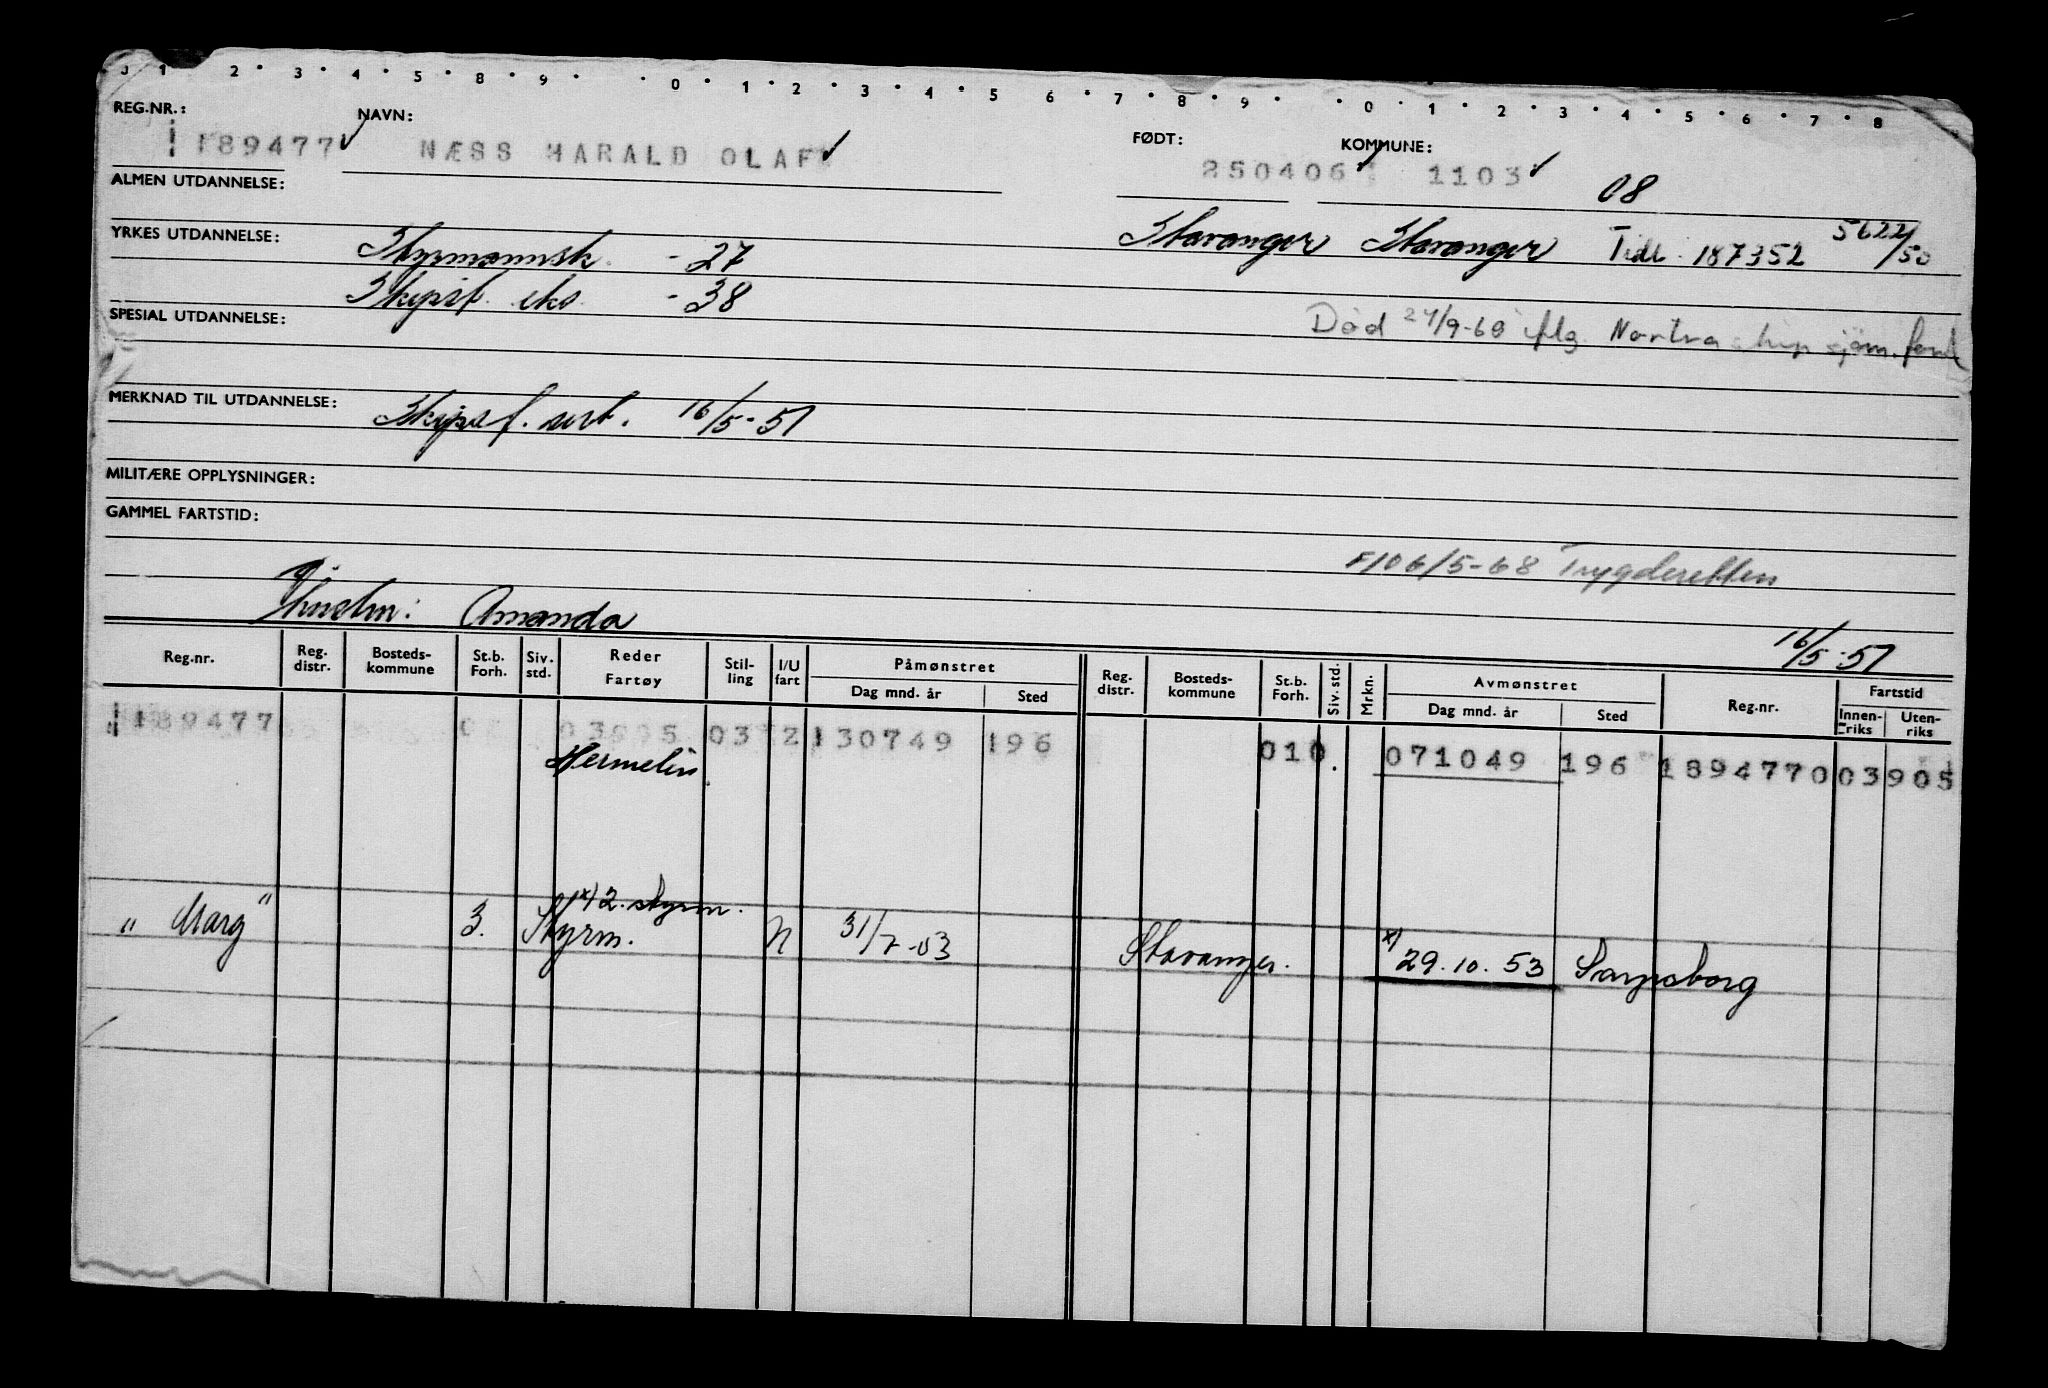 0 1 2 3 4 5 8 9 0 1 2 3 4 5 6 7 8 9 0 1 2 3 4 5 6 7 8
REG.NR.: NAVN: FØDT: KOMMUNE:
189477 NÆSS HARALD OLAF 250406 1103 08
ALMEN UTDANNELSE:
Stavanger Stavanger Tidl. 187352 5622/50
YRKES UTDANNELSE: Styrmannsk. - 27
Skipsf. eks. - 38
SPESIAL UTDANNELSE:
Død 24/9-68 iflg. Nortraship sjøm. fond
MERKNAD TIL UTDANNELSE: Skipsf. sert. 16/5-51
MILITÆRE OPPLYSNINGER:
GAMMEL FARTSTID:
F106/5-68 Trygderetten
Amanda
16/5-51
Reg.nr. Reg. distr. Bosteds-kommune St.b. Forh. Siv. std. Reder Fartøy Stil-ling I/U fart Påmønstret Dag mnd. år Sted Reg. distr. Bosteds-kommune St.b. Forh. Siv. std. Mrkn. Avmønstret Dag mnd. år Sted Reg.nr. Fartstid Innen-riks Uten-riks
189477 03 2 130749 196 010 071049 196 1894770 03905
Hermelin
x) 2. styrm.
"Marg" 3. Styrm. N 31/7-53 Stavanger. x) 29.10.53 Sarpsborg